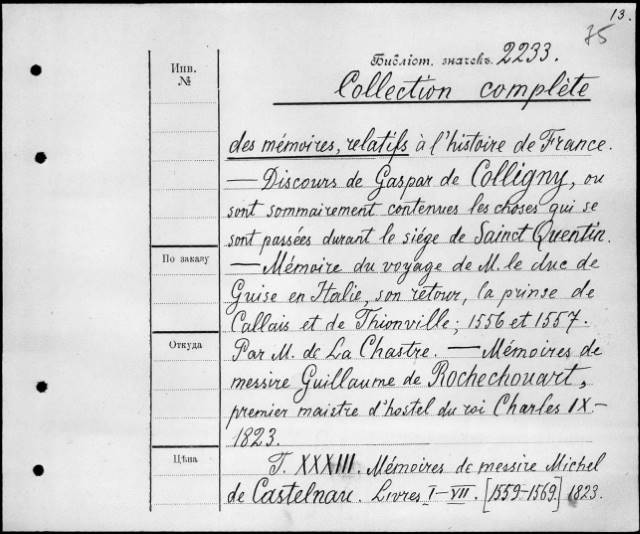 13.
75
Библіот. значекъ 2233.
Инв. №
Collection complète
des mémoires, relatifs à l'histoire de France.
— Discours de Gaspar de Colligny, ou
sont sommairement contenues les choses qui se
sont passées durant le siége de Sainct Quentin.
По заказу
— Mémoire du voyage de M. le duc de
Guise en Italie, son retour, la prinse de
Callais et de Thionville; 1556 et 1557.
Откуда
Par M. de La Chastre. — Mémoires de
messire Guillaume de Rochechouart,
premier maistre d'hostel du roi Charles IX.—
1823.
Цѣна
T. XXXIII. Mémoires de messire Michel
de Castelnau. Livres I–VII. [1559-1569.] 1823.